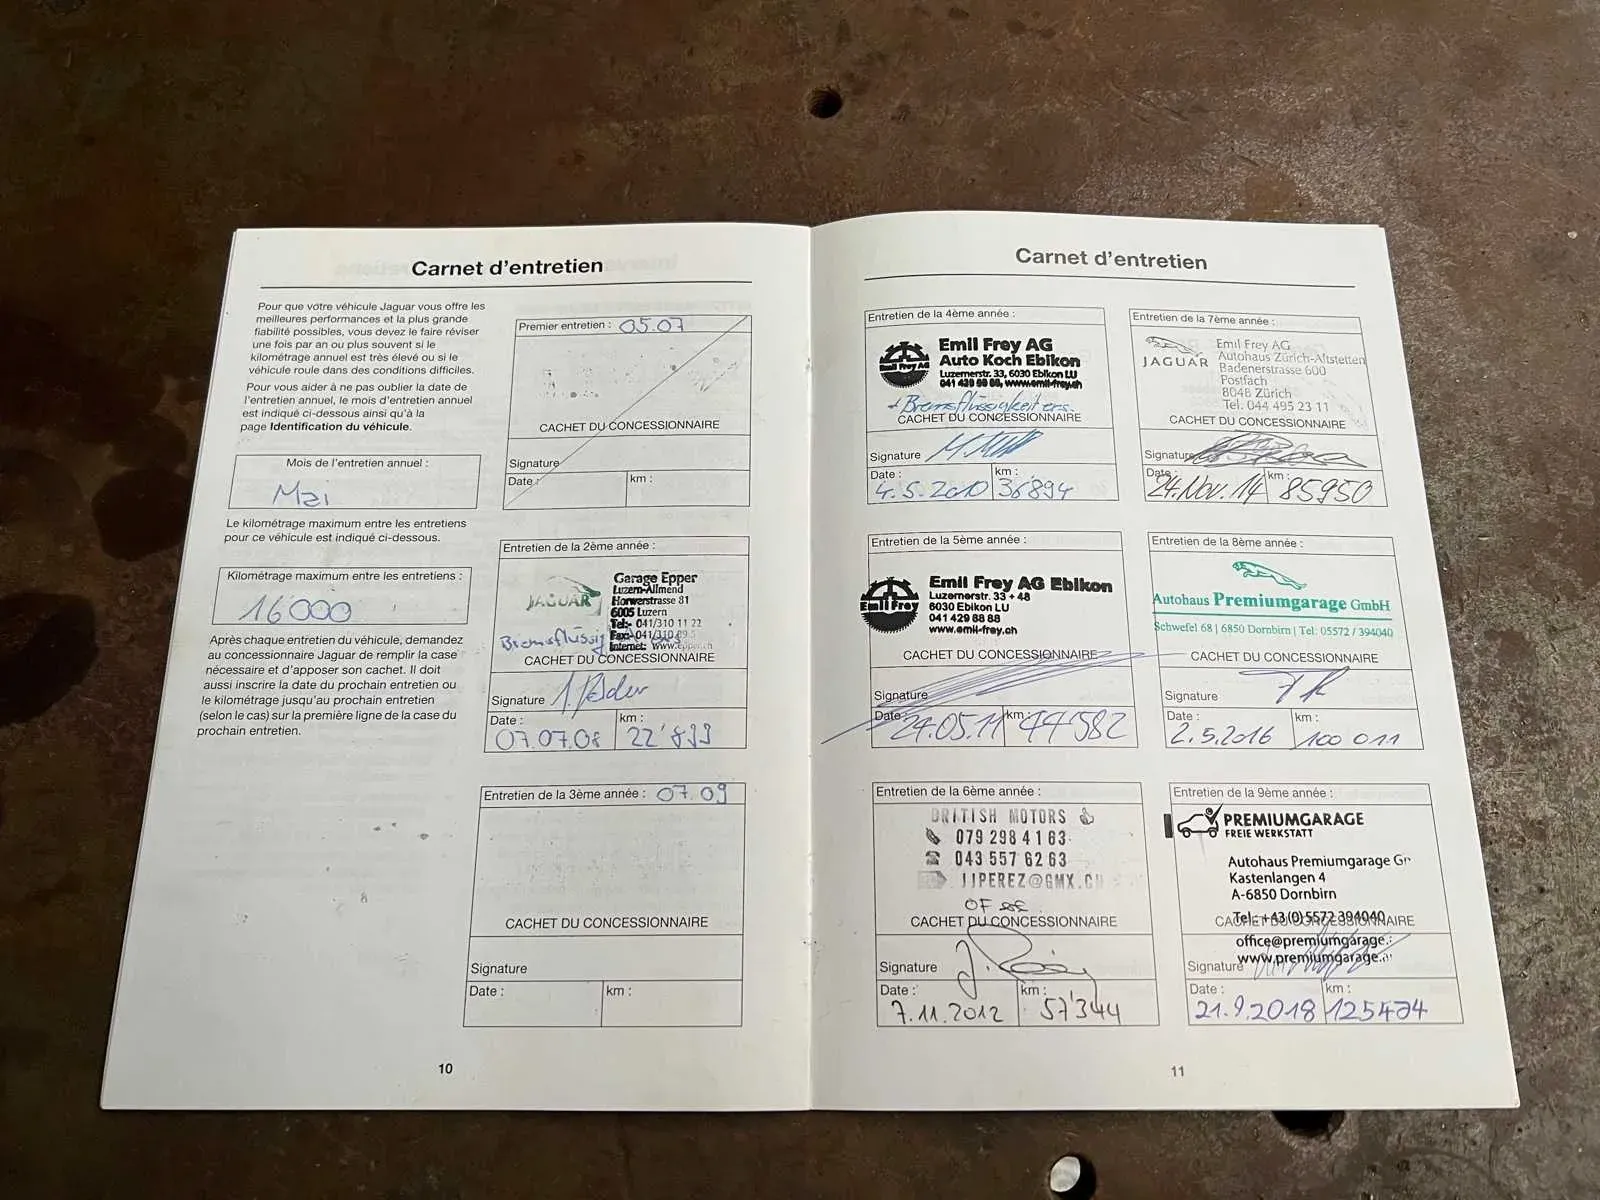 Carnet d'entretien
Pour que votre véhicule Jaguar vous offre les
meilleures performances et la plus grande
fiabilité possibles, vous devez le faire réviser
une fois par an ou plus souvent si le
kilométrage annuel est très élevé ou si le
véhicule roule dans des conditions difficiles.
Pour vous aider à ne pas oublier la date de
l'entretien annuel, le mois d'entretien annuel
est indiqué ci-dessous ainsi qu'à la
page Identification du véhicule.
Mois de l'entretien annuel :
Mai
Le kilométrage maximum entre les entretiens
pour ce véhicule est indiqué ci-dessous.
Kilométrage maximum entre les entretiens :
16000
Après chaque entretien du véhicule, demandez
au concessionnaire Jaguar de remplir la case
nécessaire et d'apposer son cachet. Il doit
aussi inscrire la date du prochain entretien ou
le kilométrage jusqu'au prochain entretien
(selon le cas) sur la première ligne de la case du
prochain entretien.
Premier entretien : 05.07
CACHET DU CONCESSIONNAIRE
Signature
Date : km :
Entretien de la 2ème année :
JAGUAR
Garage Epper
Luzern-Allmend
Horwerstrasse 81
6005 Luzern
Tel:- 041/310 11 22
Fax:-041/310
Internet: www.epper.ch
Bremsflüssig
CACHET DU CONCESSIONNAIRE
Signature
Date : km :
07.07.08 22'899
Entretien de la 3ème année : 07.09
CACHET DU CONCESSIONNAIRE
Signature
Date : km :
10
Carnet d'entretien
Entretien de la 4ème année :
Emil Frey AG
Emil Frey AG
Auto Koch Ebikon
Luzernerstr. 33, 6030 Ebikon LU
041 429 88 88, www.emil-frey.ch
+ Bremsflüssigkeit ers.
CACHET DU CONCESSIONNAIRE
Signature
Date : km :
4.5.2010 36894
Entretien de la 5ème année :
Emil Frey
Emil Frey AG Ebikon
Luzernerstr. 33 + 48
6030 Ebikon LU
041 429 88 88
www.emil-frey.ch
CACHET DU CONCESSIONNAIRE
Signature
Date : km :
24.05.11 44'582
Entretien de la 6ème année :
BRITISH MOTORS
079 298 41 63
043 557 62 63
JJPEREZ@GMX.CH
CACHET DU CONCESSIONNAIRE
Signature
Date : km :
7.11.2012 57'344
Entretien de la 7ème année :
JAGUAR
Emil Frey AG
Autohaus Zürich-Altstetten
Badenerstrasse 600
Postfach
8048 Zürich
Tel. 044 495 23 11
CACHET DU CONCESSIONNAIRE
Signature
Date : km :
24.Nov.14 85950
Entretien de la 8ème année :
Autohaus Premiumgarage GmbH
Schwefel 68 | 6850 Dornbirn | Tel: 05572 / 394040
CACHET DU CONCESSIONNAIRE
Signature
Date : km :
2.5.2016 100 011
Entretien de la 9ème année :
PREMIUMGARAGE
FREIE WERKSTATT
Autohaus Premiumgarage G
Kastenlangen 4
A-6850 Dornbirn
Tel.: +43 (0) 5572 394040
CACHET DU CONCESSIONNAIRE
office@premiumgarage.
www.premiumgarage.
Signature
Date : km :
21.9.2018 125474
11